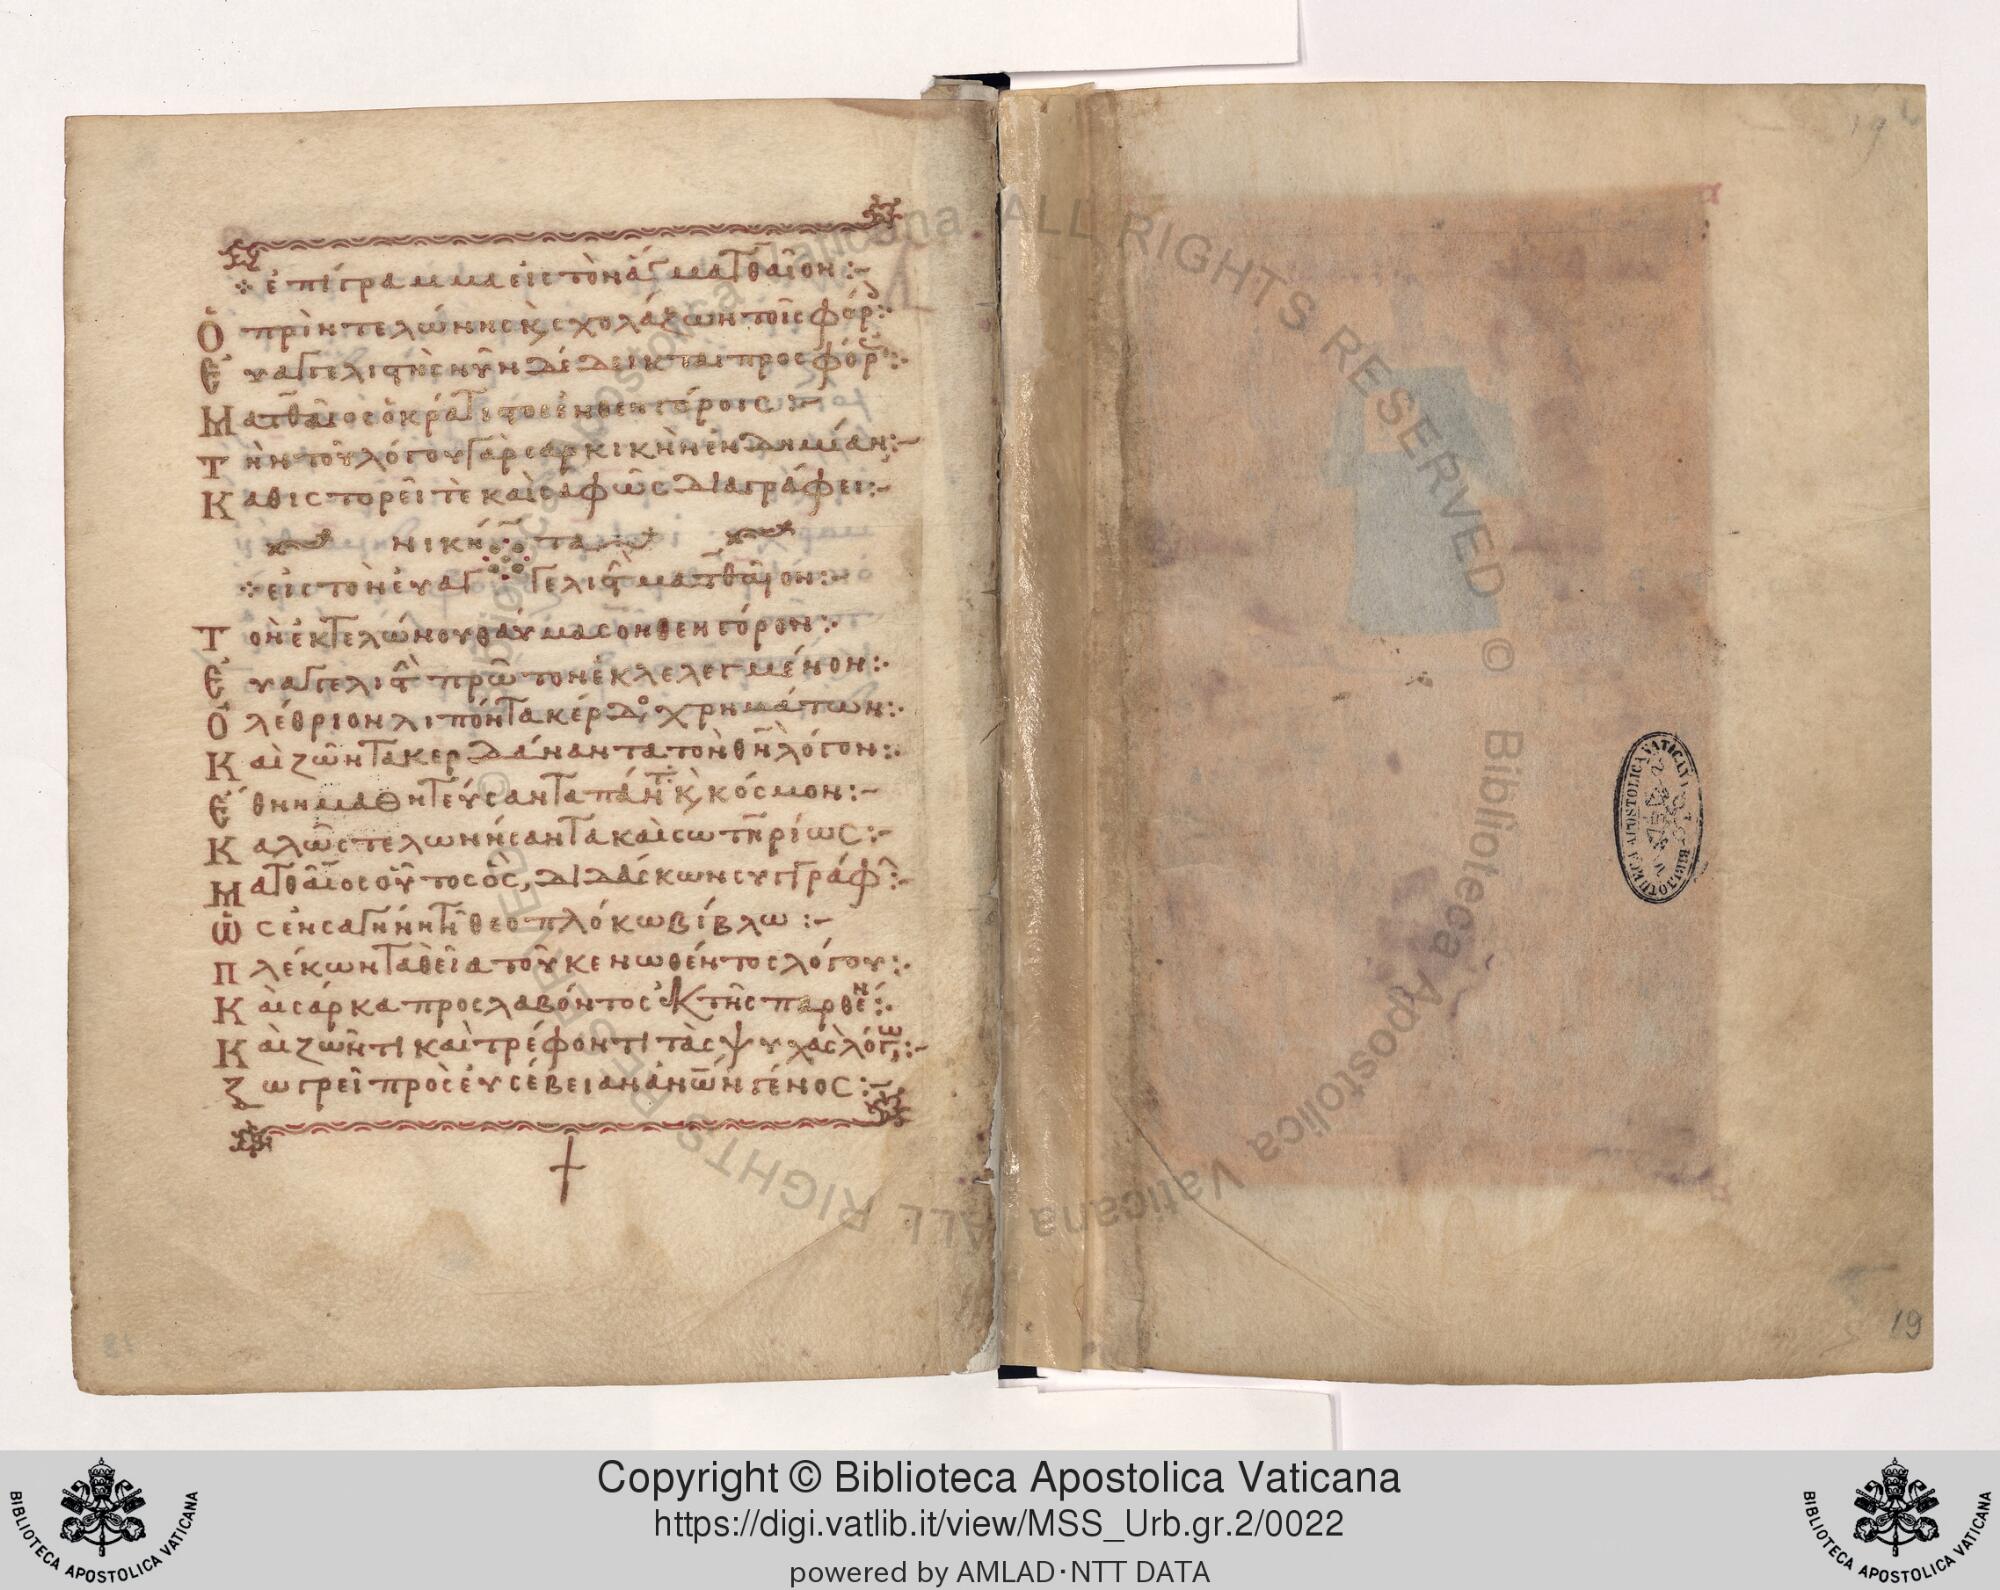 ἐπίγραμμα εἰς τὸν ἅγ ματθαῖον :~
Ὁ πρὶν τελώνης κ σχολάζων τοῖς φόρ :
Εὐαγγελιστὴς νῦν δέδεικται προσφόρ :
Ματθαῖος ὁ κράτιστος ἐν θεηγόροις :~
Τὴν τοῦ λόγου γὰρ σαρκικὴν ἐνδημίαν :~
Καθιστορεῖ τὲ καὶ σαφῶς διαγράφει :~
νική τα
εἰς τὸν εὐαγγελιστ ματθαῖον :~
Τὸν ἐκ τελώνου θαύμασον θεηγόρον :
Εὐαγγελιστ πρῶτον ἐκλελεγμένον :
Ὀλέθριον λιπόντα κέρδο χρημάτων :
Καὶ ζῶντα κερδάναντα τὸν θν λόγον :
Ἔθνη μαθητεύσαντα πάντ κ κόσμον :~
Καλῶς τελωνήσαντα καὶ σωτηρίως :~
Ματθαῖος οὗτος ὃς διδάσκων συγγράφ :~
Ὡς ἐν σαγήνη τῆ θεοπλόκω βίβλω :~
Πλέκων τὰ θεῖα τοῦ κενωθέντος λόγου :
Καὶ σάρκα προσλαβόντος ἐκ τῆς παρθέν :
Καὶ ζῶντι καὶ τρέφοντι τὰς ψυχὰς λόγω :~
Ζωγρεῖ πρὸς εὐσέβειαν ἀνῶν γένος :~
19
19
BIBLIOTECA APOSTOLICA VATICANA
© Biblioteca Apostolica Vaticana ALL RIGHTS RESERVED
Copyright © Biblioteca Apostolica Vaticana
https://digi.vatlib.it/view/MSS_Urb.gr.2/0022
powered by AMLAD·NTT DATA
BIBLIOTECA APOSTOLICA VATICANA
BIBLIOTECA APOSTOLICA VATICANA